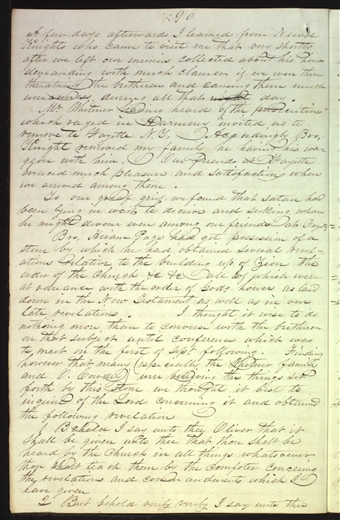 290
A few days afterwards I learned from Newel
Knights who came to visit me that very shortly
after we left our enemies collected about his home
demanding with much clamor if we were there
threatned the bretheren and causing them much
uneasiness during all that day.
Mr Whitmer having heard of the persecutions
which raged in Harmony invited us to
remove to Fayette N.Y. Accordingly Bro.
Knight removed my family he having his wag
gon with him. Our friends at Fayette
evinced much pleasure and satisfaction when
we arrived among them.
To our great grief we found that satan had
been lying in wait to deceive and seeking whom
he might devour even among our friends at Fayette
Bro. Hiram Page had got possession of a
stone by which he had obtained several Revel-
ations relative to the building up of Zion the
order of the Church &c &c all of which were
at variance with the order of Gods house as laid
down in the New Testament as well as in our
late revelations. I thought it wise to do
nothing more than to converse with the brethren
on that subject until conference which was
to meet on the first of Sept following. Finding
however that many (especially the Whitmer family
and O. Cowdery) were believing the things set
forth by this stone we thought it best to
inquire of the Lord concerning it and obtained
the following revelation
1 Behold I say unto thee Oliver that it
shall be given unto thee that thou shalt be
heard by the Church in all things whatsoever
thou shalt teach them by the Comforter concerning
the revelations and commandments which I
have given
2 But behold verily verily I say unto thee